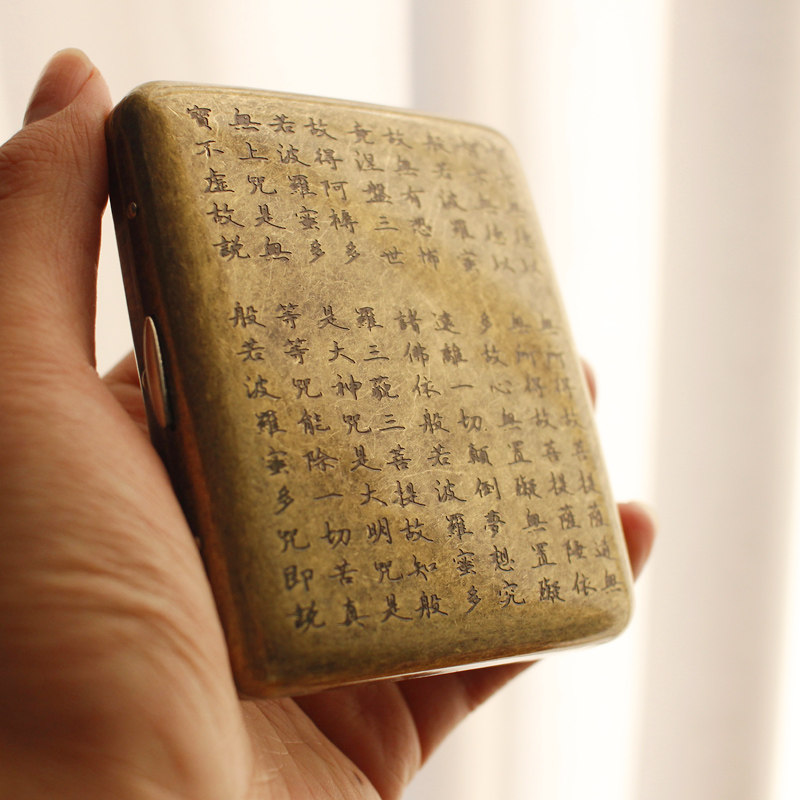 無所得故菩提薩
無得以無所得故菩提薩陲依
般若波羅蜜多故心無置礙無置礙
故無有恐怖遠離一切顛倒夢想究
竟涅盤三世諸佛依般若波羅蜜多
故得阿耨多羅三藐三菩提故知般
若波羅蜜多是大神咒是大明咒是
無上咒是無等等咒能除一切苦真
實不虛故説般若波羅蜜多咒即説